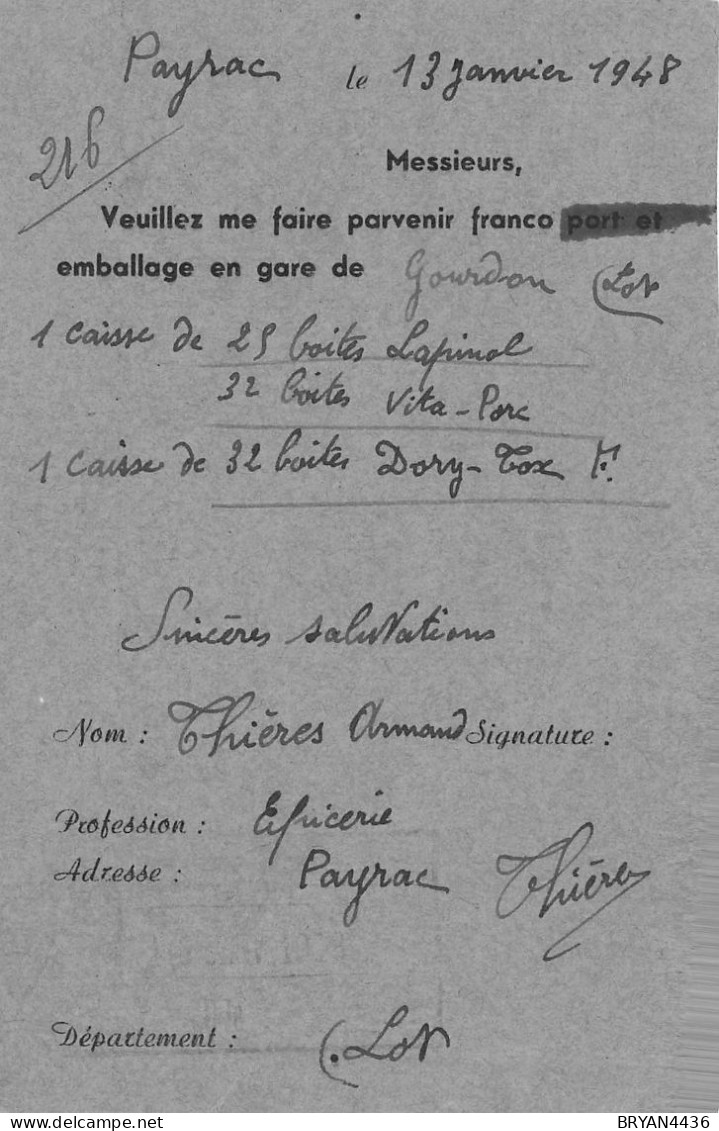 Payrac le 13 Janvier 1948
216
Messieurs,
Veuillez me faire parvenir franco port et
emballage en gare de Gourdon (Lot
1 Caisse de 25 boites Lapinol
32 boites Vita-Porc
1 Caisse de 32 boites Dory-Tox F.
Sincères salutations
Nom : Thières Armand Signature :
Profession : Epicerie
Adresse : Payrac Thières
Département : (Lot
delcampe.net BRYAN4436